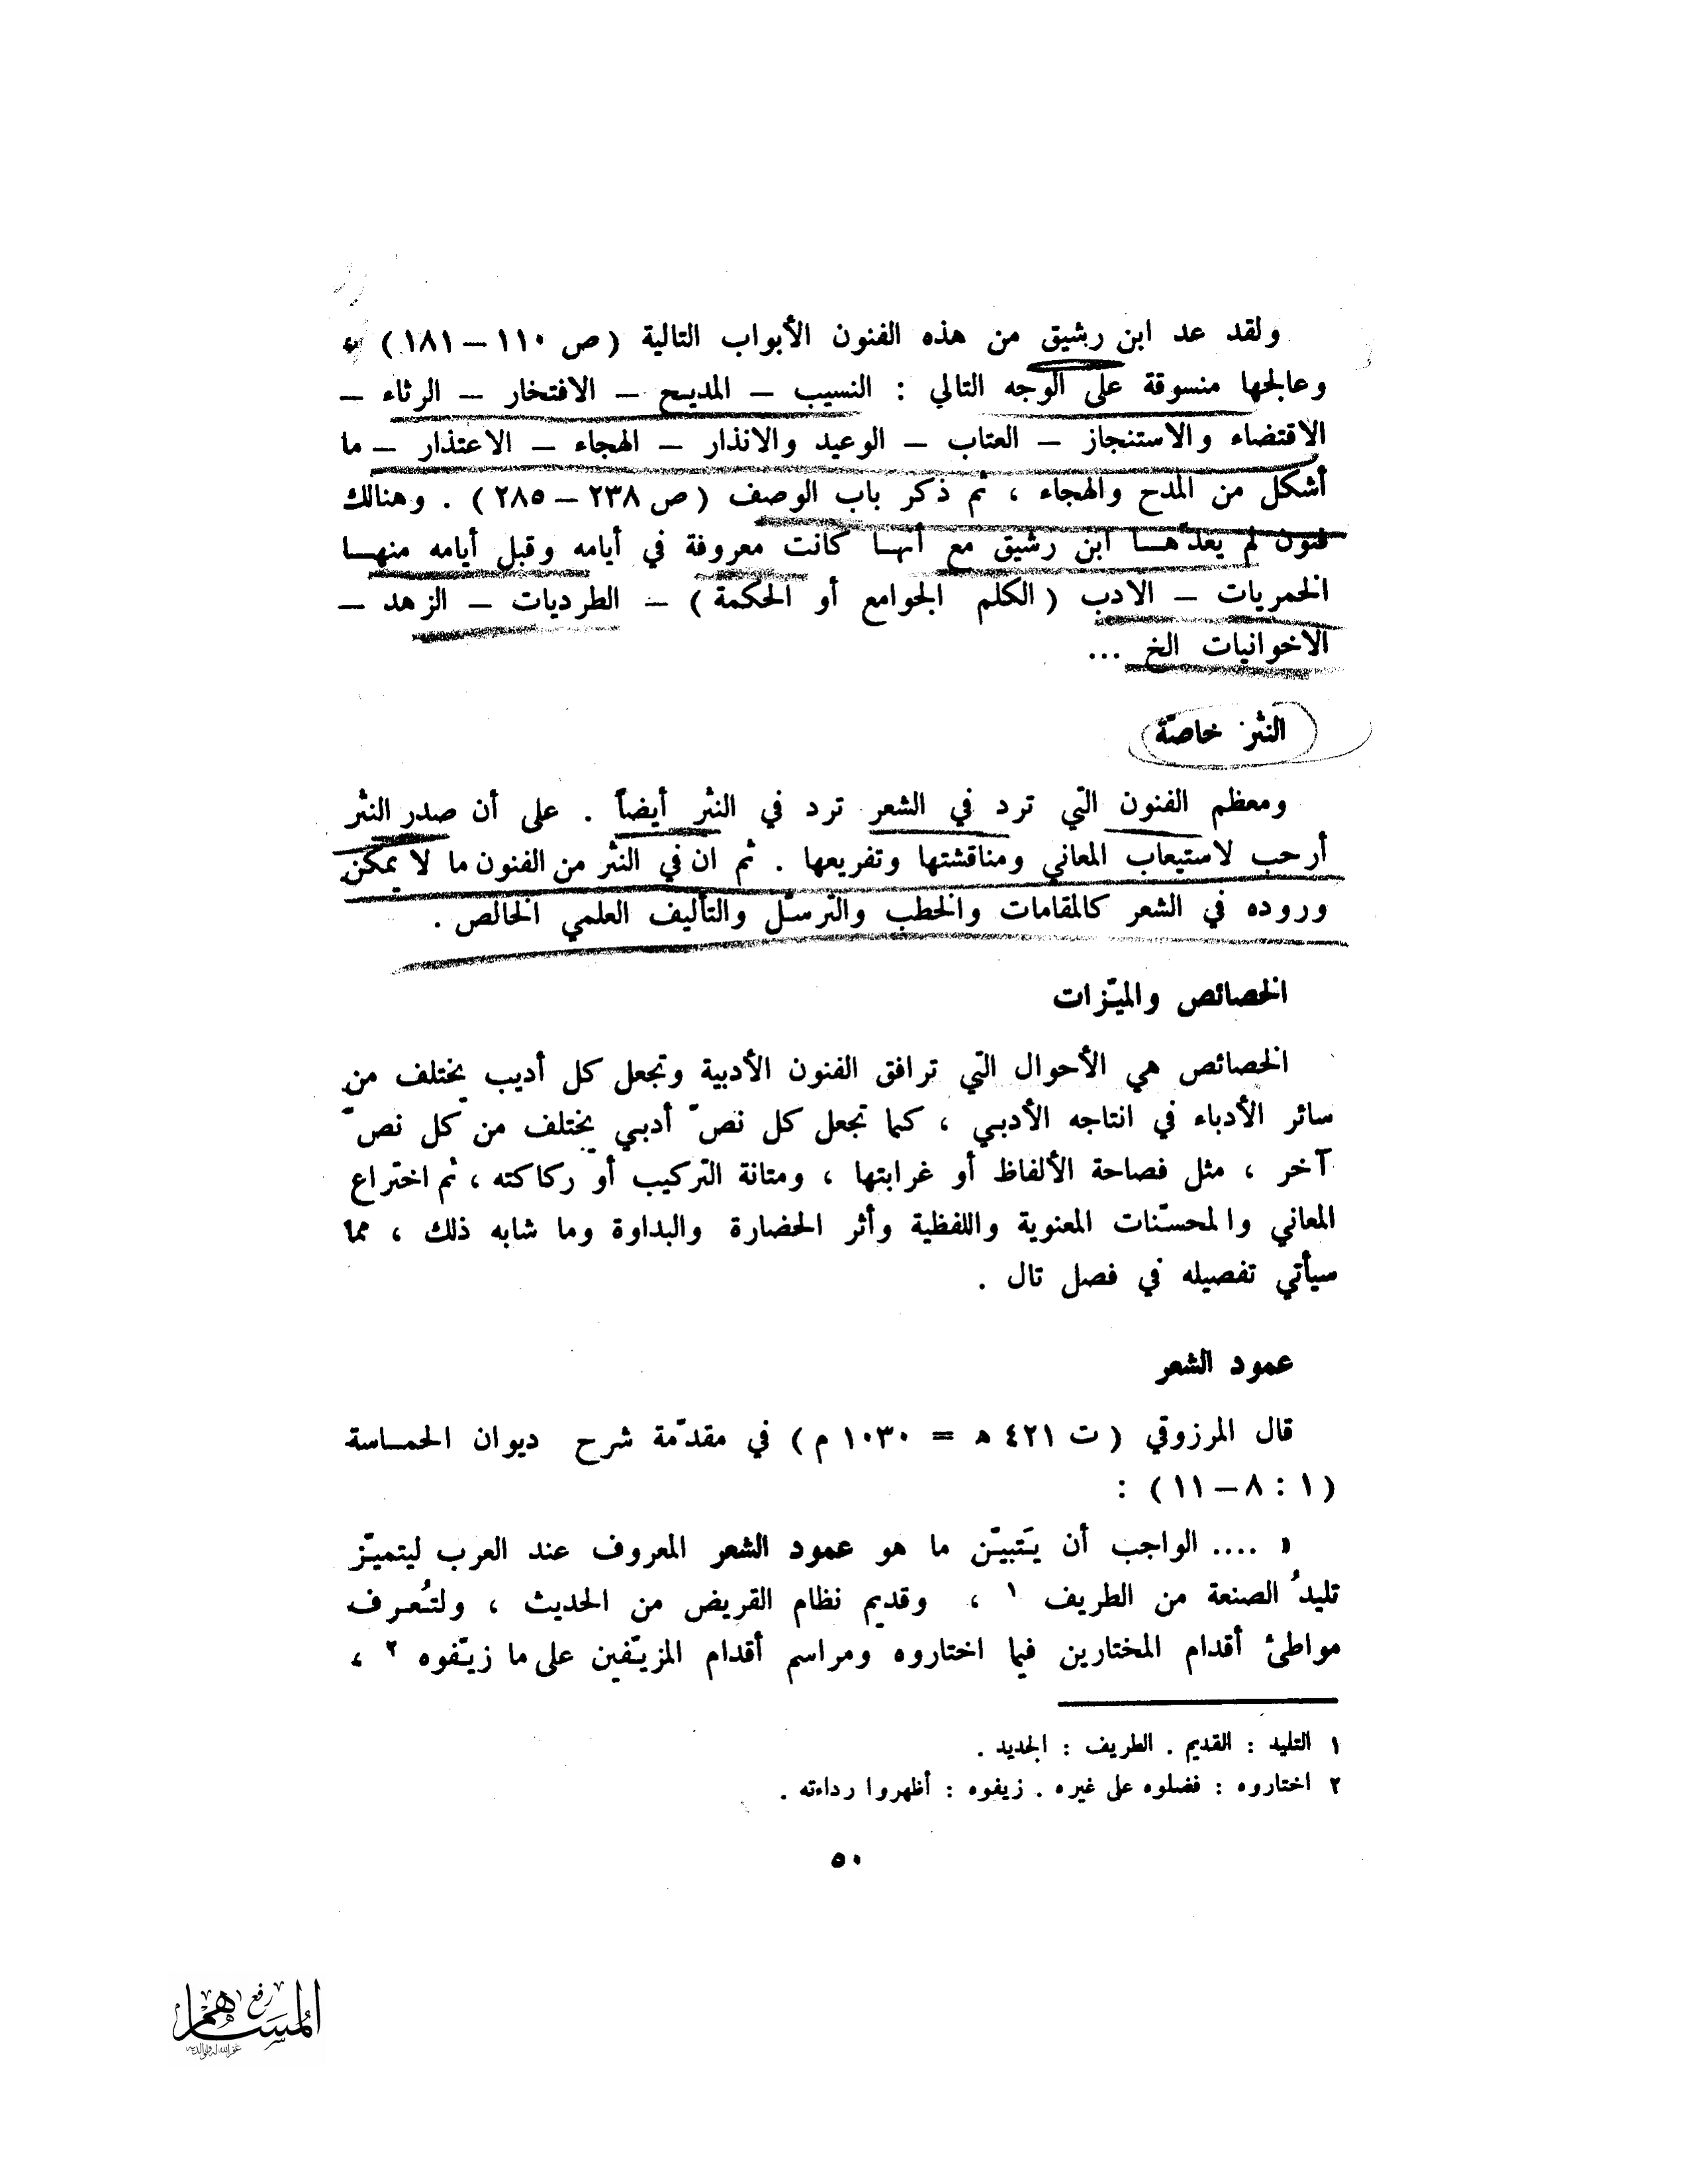 ولقد عد ابن رشيق من هذه الفنون الأبواب التالية (ص ١١٠ – ١٨١) ،
وعالجها منسوقة على الوجه التالي : النسيب – المديح – الافتخار – الرثاء –
الاقتضاء والاستنجاز – العتاب – الوعيد والانذار – الهجاء – الاعتذار – ما
أشكل من المدح والهجاء ، ثم ذكر باب الوصف (ص ٢٣٨ – ٢٨٥) . وهنالك
فنون لم يعدّها ابن رشيق مع أنها كانت معروفة في أيامه وقبل أيامه منها
الخمريات – الادب (الكلم الجوامع أو الحكمة) – الطرديات – الزهد –
الاخوانيات الخ ...
النثر خاصّة
ومعظم الفنون التي ترد في الشعر ترد في النثر أيضاً . على أن صدر النثر
أرحب لاستيعاب المعاني ومناقشتها وتفريعها . ثم ان في النثر من الفنون ما لا يمكن
وروده في الشعر كالمقامات والخطب والترسّل والتأليف العلمي الخالص .
الخصائص والميّزات
الخصائص هي الأحوال التي ترافق الفنون الأدبية وتجعل كل أديب يختلف من
سائر الأدباء في انتاجه الأدبي ، كما تجعل كل نصّ أدبي يختلف من كل نصّ
آخر ، مثل فصاحة الألفاظ أو غرابتها ، ومتانة التركيب أو ركاكته ، ثم اختراع
المعاني والمحسّنات المعنوية واللفظية وأثر الحضارة والبداوة وما شابه ذلك ، مما
سيأتي تفصيله في فصل تال .
عمود الشعر
قال المرزوقي (ت ٤٢١ ه = ١٠٣٠ م) في مقدّمة شرح ديوان الحماسة
(١ : ٨ – ١١) :
« .... الواجب أن يَتبيّن ما هو عمود الشعر المعروف عند العرب ليتميّز
تليدُ الصنعة من الطريف ١ ، وقديم نظام القريض من الحديث ، ولتُعرف
مواطئ أقدام المختارين فيما اختاروه ومراسم أقدام المزيّفين على ما زيّفوه ٢ ،
١ التليد : القديم . الطريف : الجديد .
٢ اختاروه : فضلوه على غيره . زيفوه : أظهروا رداءته .
٥٠
رفع
المساهم
غفر الله له ولوالديه